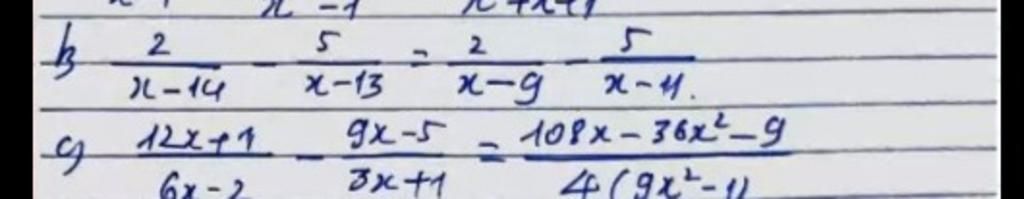 x - 1 x + x + 1
b) 2/(x - 14) - 5/(x - 13) = 2/(x - 9) - 5/(x - 11).
c) (12x + 1)/(6x - 2) - (9x - 5)/(3x + 1) = (108x - 36x² - 9)/(4(9x² - 1))